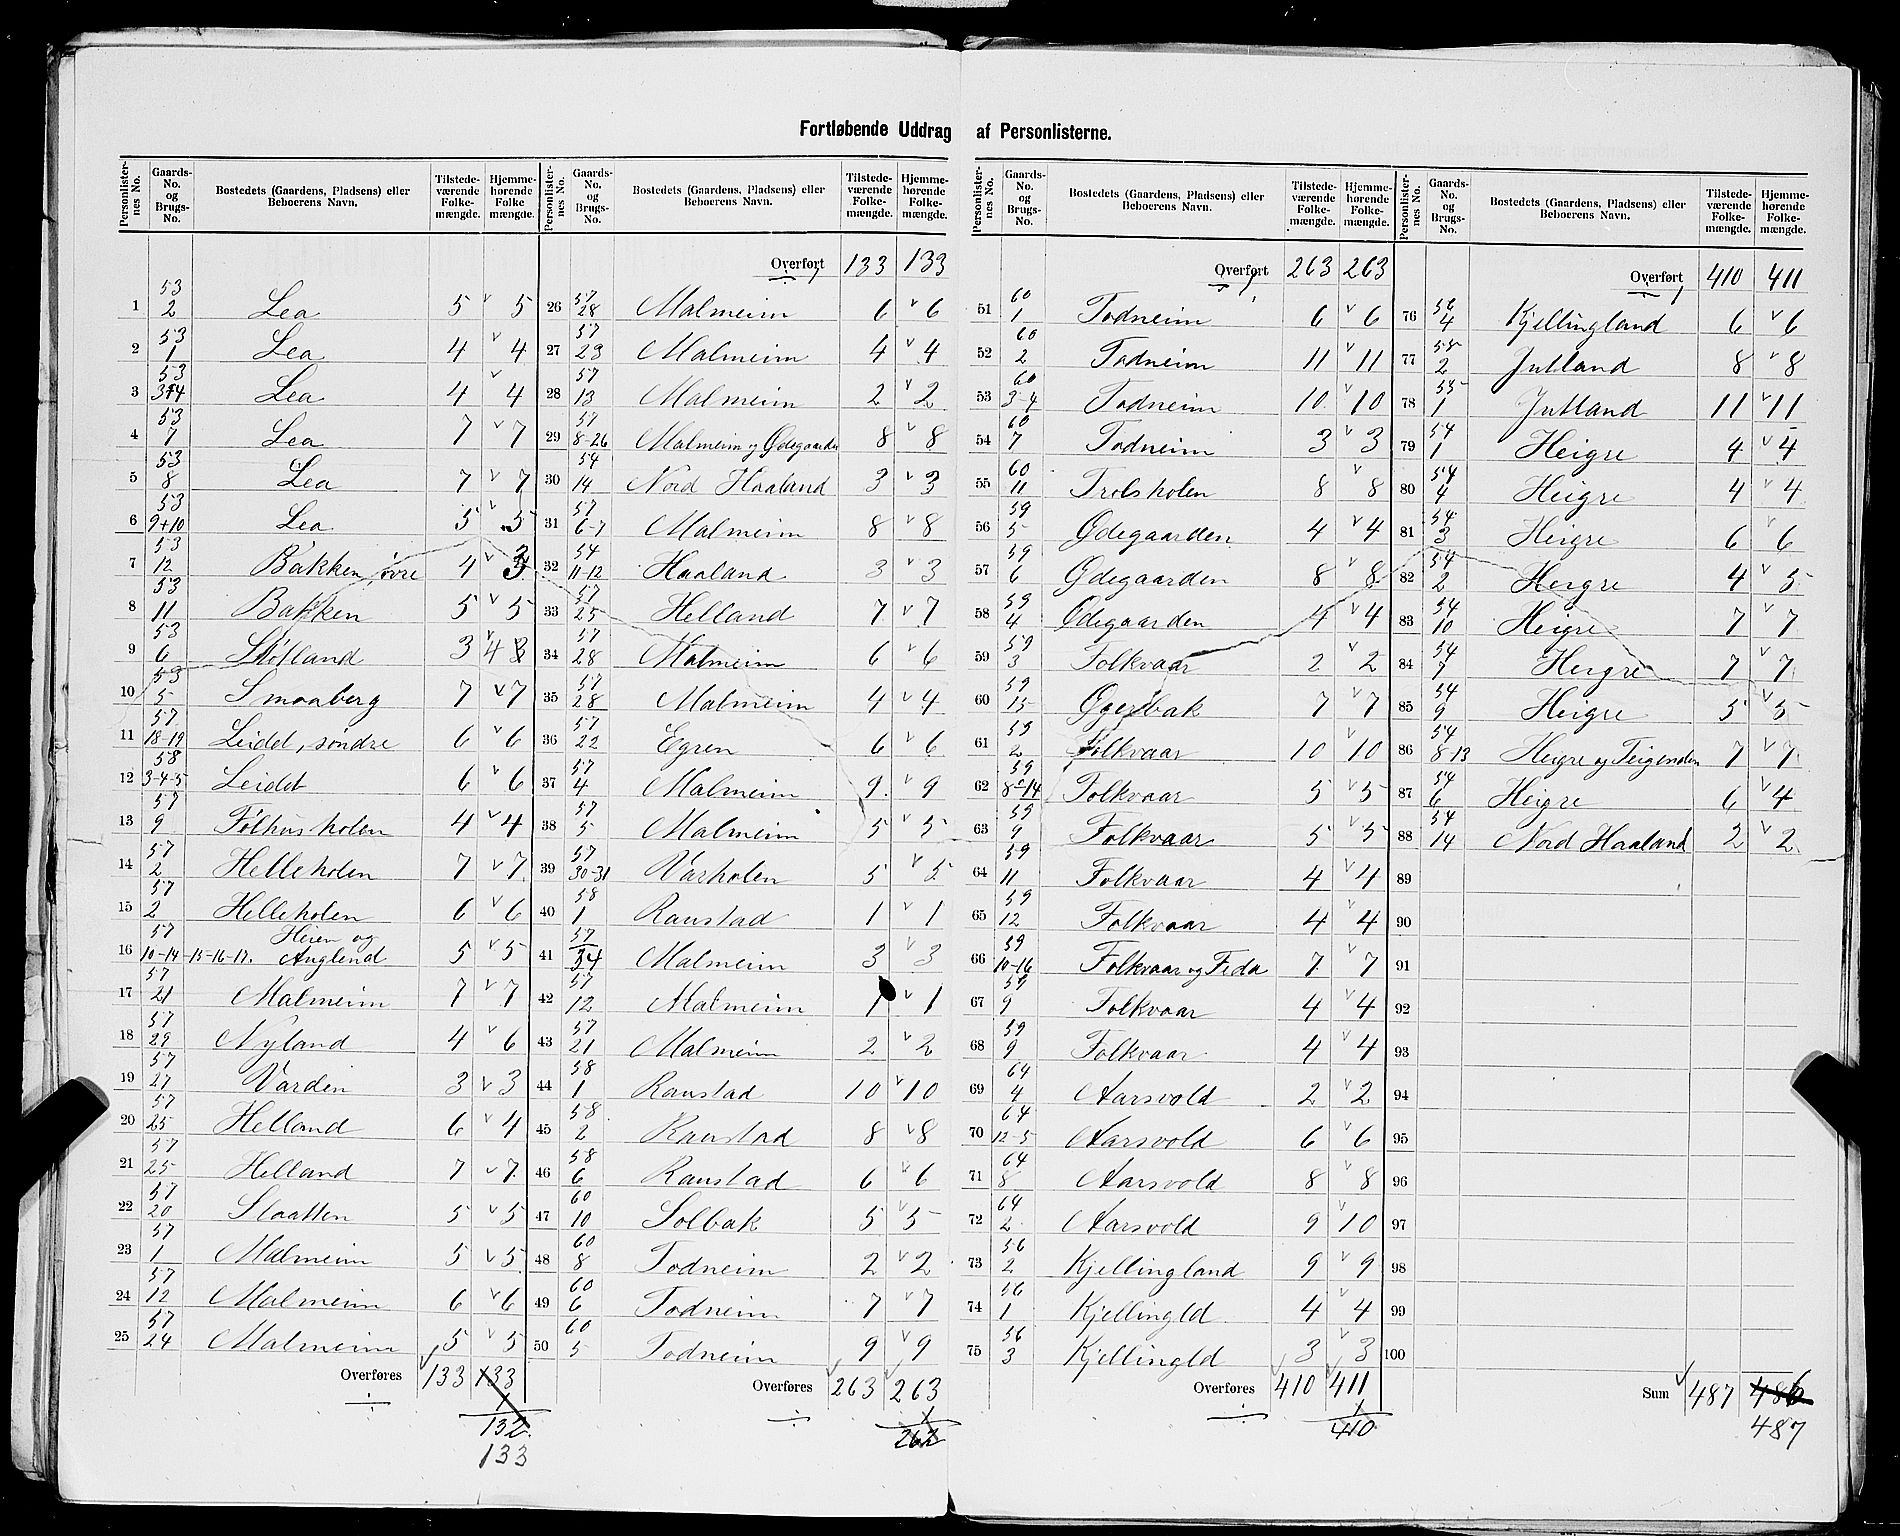 Fortløbende Uddrag af Personlisterne.
Personlister-nes No. Gaards-No. og Brugs-No. Bostedets (Gaardens, Pladsens) eller Beboerens Navn. Tilstede-værende Folke-mængde. Hjemme-hørende Folke mængde.
1 53 2 Lea 5 v 5
2 53 1 Lea 4 v 4
3 53 3+4 Lea 4 v 4
4 53 7 Lea 7 v 7
5 53 8 Lea 7 v 7
6 53 9+10 Lea 5 v 5
7 53 12 Bakken, øvre 4 v 3
8 53 11 Bakken 5 v 5
9 53 6 Skotland 3 v 4 3
10 53 5 Smaaberg 7 v 7
11 57 18-19 Leidet, søndre 6 v 6
12 58 3-4-5 Leidet 6 v 6
13 57 9 Følhusholen 4 v 4
14 57 2 Helleholen 7 v 7
15 57 2 Helleholen 6 v 6
16 57 10-14-15-16-17. Heien og Auglend 5 v 5
17 57 21 Malmeim 7 v 7
18 57 29 Nyland 4 v 6
19 57 27 Varden 3 v 3
20 57 25 Helland 6 v 4
21 57 25 Helland 7 v 7
22 57 20 Slaatten 5 v 5
23 57 1 Malmeim 5 v 5
24 57 12 Malmeim 6 v 6
25 57 24 Malmeim 5 v 5
Overføres 133 133
1
132
133
Personlister-nes No. Gaards-No. og Brugs-No. Bostedets (Gaardens, Pladsens) eller Beboerens Navn. Tilstede-værende Folke-mængde. Hjemme-hørende Folke-mængde.
Overført 133 133
26 57 28 Malmeim 6 v 6
27 57 23 Malmeim 4 v 4
28 57 13 Malmeim 2 v 2
29 57 8-26 Malmeim og Ødegaarden 8 v 8
30 54 14 Nord Haaland 3 v 3
31 57 6-7 Malmeim 8 v 8
32 54 11-12 Haaland 3 v 3
33 57 25 Helland 7 v 7
34 57 28 Malmeim 6 v 6
35 57 28 Malmeim 4 v 4
36 57 22 Egren 6 v 6
37 57 4 Malmeim 9 v 9
38 57 5 Malmeim 5 v 5
39 57 30-31 Varholen 5 v 5
40 58 1 Raustad 1 v 1
41 57 34 Malmeim 3 v 3
42 57 12 Malmeim 1 v 1
43 57 21 Malmeim 2 v 2
44 58 1 Raustad 10 v 10
45 58 2 Raustad 8 v 8
46 58 6 Raustad 6 v 6
47 60 10 Solbak 5 v 5
48 60 8 Todneim 2 v 2
49 60 6 Todneim 7 v 7
50 60 5 Todneim 9 v 9
Overføres 263 263
1
262
Personlister-nes No. Gaards-No. og Brugs-No. Bostedets (Gaardens, Pladsens) eller Beboerens Navn. Tilstede-værende Folke-mængde. Hjemme-hørende Folke-mængde.
Overført 263 263
51 60 1 Todneim 6 v 6
52 60 2 Todneim 11 v 11
53 60 3-4 Todneim 10 v 10
54 60 7 Todneim 3 v 3
55 60 11 Trolsholen 8 v 8
56 59 5 Ødegaarden 4 v 4
57 59 6 Ødegaarden 8 v 8
58 59 4 Ødegaarden 4 v 4
59 59 3 Folkvaar 2 v 2
60 59 15 7 v 7
61 59 2 Folkvaar 10 v 10
62 59 8-14 Folkvaar 5 v 5
63 59 9 Folkvaar 5 v 5
64 59 11 Folkvaar 4 v 4
65 59 12 Folkvaar 4 v 4
66 59 10-16 Folkvaar og Feda 7 v 7
67 59 9 Folkvaar 4 v 4
68 59 9 Folkvaar 4 v 4
69 64 4 Aarsvold 2 v 2
70 64 12-5 Aarsvold 6 v 6
71 64 8 Aarsvold 8 v 8
72 64 2 Aarsvold 9 v 10
73 56 2 Kjellingland 9 v 9
74 56 1 Kjellingld 4 v 4
75 56 3 Kjellingld 3 v 3
Overføres 410 411
1
410
Personlister-nes No. Gaards-No. og Brugs-No. Bostedets (Gaardens, Pladsens) eller Beboerens Navn. Tilstede-værende Folke-mængde. Hjemme-hørende Folke-mængde.
Overført 410 411
76 56 4 Kjellingland 6 v 6
77 55 2 Jutland 8 v 8
78 55 1 Jutland 11 v 11
79 54 1 Heigre 4 v 4
80 54 4 Heigre 4 v 4
81 54 3 Heigre 6 v 6
82 54 2 Heigre 4 v 5
83 54 10 Heigre 7 v 7
84 54 7 Heigre 7 v 7
85 54 9 Heigre 5 v 5
86 54 8-13 Heigre og Teigenden 7 v 7
87 54 6 Heigre 6 v 4
88 54 14 Nord Haaland 2 v 2
89
90
91
92
93
94
95
96
97
98
99
100
Sum 487 486
487